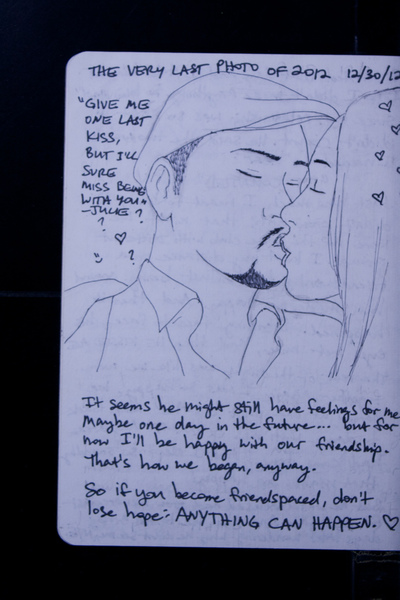 THE VERY LAST PHOTO OF 2012 12/30/12
"GIVE ME
ONE LAST
KISS,
BUT I'LL
SURE
MISS BEING
WITH YOU"
-JULIE?
?
?
It seems he might still have feelings for me
Maybe one day in the future... but for
now I'll be happy with our friendship.
That's how we began, anyway.
So if you become friendspaced, don't
lose hope: ANYTHING CAN HAPPEN.